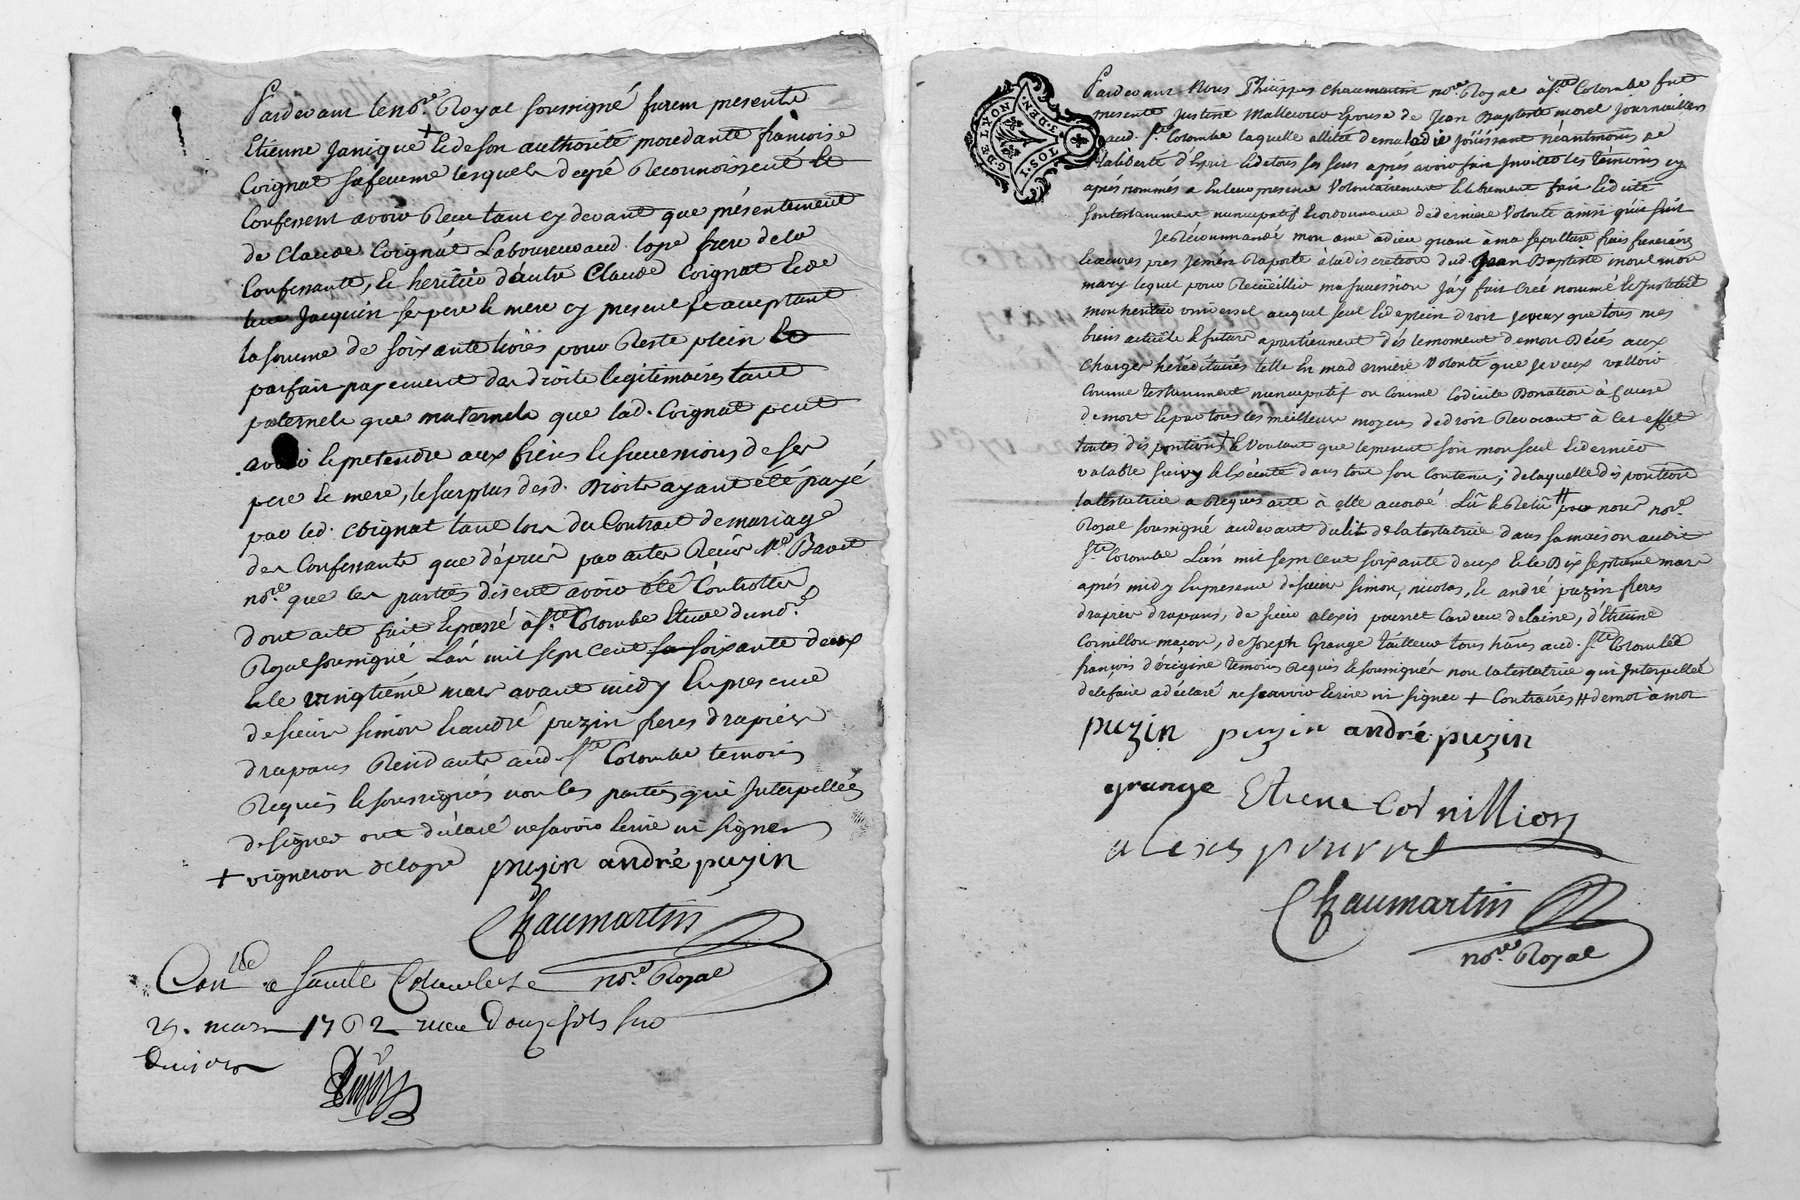 Pardevant le no.re Royal soussigné furent présents
Etienne Janique + et de son authorité procedante françoise
Coignat sa femme lesquels de gré Reconnoissent et
Confessent avoir Reçu tant cy devant que présentement
de Claude Coignat Laboureur aud. lope frere de la
Confessante, et heritier d'autre Claude Coignat et de
Jacquin ses pere et mere cy present et acceptant
la somme de soixante livres pour Reste plein et
parfait payement des droits legitimaires tant
paternels que maternels que lad. Coignat peut
avoir et pretendre aux biens et successions de ses
pere et mere, le surplus desd. Droits ayant été payé
par led. Coignat tant lors du Contrat de mariage
des Confessants que dépuis par actes Reçus Me
no.re que les parties disent avoir été Controllés
dont acte fait et passé à Ste Colombe Etude dud no.re
Royal soussigné L'an mil sept cent soixante deux
et le vingtième mars avant midy En presence
de sieurs simon et andré puzin freres drapiers
drapans Residants aud. Ste Colombe temoins
Requis et soussignés non les parties qui Interpellées
de signer ont déclaré ne savoir Ecrire ni signer
+ vigneron de lope puzin andré puzin
Chaumartin
no.re Royal
Con.lle a Sainte Colombe le
29. mars 1762 reçu Douze sols six
deniers
Pardevant Nous Philippes Chaumartin no.re Royal à Ste Colombe fut
presente Justine Mallevore Epouse de Jean Baptiste morel Journaillier
aud. Ste Colombe laquelle allitée de maladie Joüissant néantmoins de
la liberté d'Esprit et de tous ses sens après avoir fait Inviter les témoins cy
après nommés a En leur presence Volontairement et librement fait et dicté
son testamment nuncupatif et ordonnance de derniere Volonté ainsi qu'il suit
Je Récommande mon ame à dieu quant à ma sépulture frais funeraires
et œuvres pies Je m'en Raporte à la discretion dud. Jean Baptiste morel mon
mary lequel pour Recüeillir ma succession J'ay fait créé nommé et Institué
mon heritier universel auquel seul et de plein droit Je veux que tous mes
biens actuels et futurs apartiennent dès le moment de mon Décès aux
charges héréditaires telle Est ma derniere Volonté que Je veux valloir
comme testamment nuncupatif ou comme Codicile Donation à Cause
de mort et par tous les meilleurs moyens de droit Revocant à cet effet
toutes dispositions + et Voulant que le present soit mon seul et dernier
valable suivy et Exécuté dans tout son contenu; de laquelle disposition
la testatrice a Requis acte à elle accordé. Lû et Relû # par nous no.re
Royal soussigné au devant du lit de la testatrice dans sa maison audit
Ste Colombe L'an mil sept cent soixante deux et le Dix septième mars
après midy En presence de sieurs simon, nicolas, et andré puzin freres
drapiers drapans, de sieur alexis pourret Cardeur de laine, d'Etienne
Cornillon maçon, de Joseph Grange tailleur tous h.ans aud. Ste Colombe
françois d'origine temoins Requis et soussignés non la testatrice qui Interpellée
de le faire a déclaré ne sçavoir Ecrire ni signer + Contraires # de mot à mot
puzin puzin andré puzin
grange Etiene Cornillion
alexis pourret
Chaumartin
no.re Royal
G. DE LYON
3. DEN.